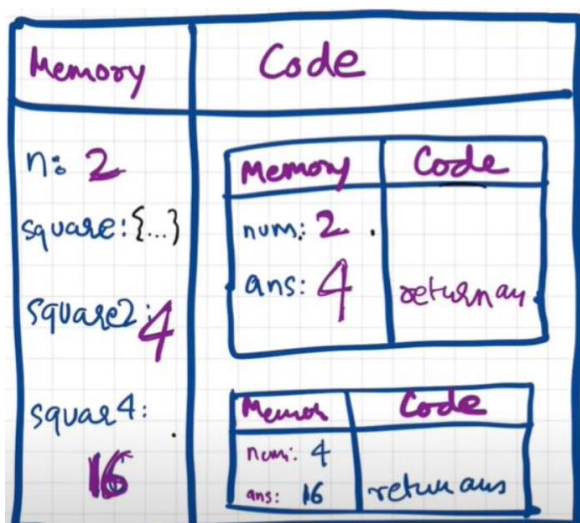 Memory
Code
n: 2
square: {...}
square2: 4
squar4:
16
Memory
Code
num: 2
ans: 4
return an
Memor
Code
num: 4
ans: 16
return ans